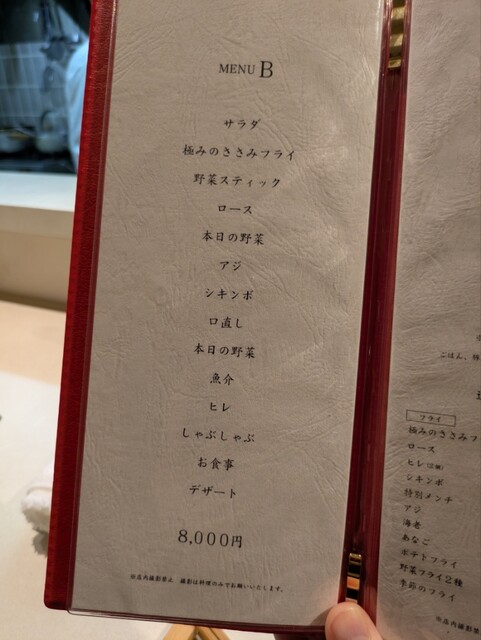 MENU B
サラダ
極みのささみフライ
野菜スティック
ロース
本日の野菜
アジ
シキンボ
口直し
本日の野菜
魚介
ヒレ
しゃぶしゃぶ
お食事
デザート
8,000円
※店内撮影禁止 撮影は料理のみでお願いいたします。
ごはん、
フライ
極みのささみフ
ロース
ヒレ
シキンボ
特別メンチ
アジ
海老
あなご
ポテトフライ
野菜フライ2種
季節のフライ
※店内撮影